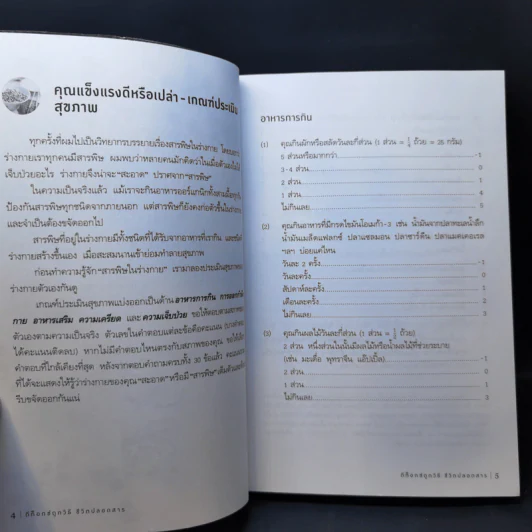 คุณแข็งแรงดีหรือเปล่า - เกณฑ์ประเมิน
สุขภาพ
ทุกครั้งที่ผมไปเป็นวิทยากรบรรยายเรื่องสารพิษในร่างกาย
ร่างกายเราทุกคนมีสารพิษ ผมพบว่าหลายคนมักคิดว่าในเมื่อตัวเองไม่ได้
เจ็บป่วยอะไร ร่างกายจึงน่าจะ "สะอาด" ปราศจาก "สารพิษ"
ในความเป็นจริงแล้ว แม้เราจะกินอาหารออร์แกนิกทั้งสามมื้อทุกวัน
ป้องกันสารพิษทุกชนิดจากภายนอก แต่สารพิษก็ยังคงก่อตัวขึ้นในร่างกาย
และจำเป็นต้องขจัดออกไป
สารพิษที่อยู่ในร่างกายมีทั้งชนิดที่ได้รับจากอาหารที่เรากิน และชนิดที่
ร่างกายสร้างขึ้นเอง เมื่อสะสมนานเข้าย่อมทำลายสุขภาพ
ก่อนทำความรู้จัก "สารพิษในร่างกาย" เรามาลองประเมินสุขภาพของ
ร่างกายตัวเองกันดู
เกณฑ์ประเมินสุขภาพแบ่งออกเป็นด้านอาหารการกิน การออกกำลัง
กาย อาหารเสริม ความเครียด และความเจ็บป่วย ขอให้ตอบตามสภาพของ
ตัวเองตามความเป็นจริง ตัวเลขในคำตอบแต่ละข้อคือคะแนน
ได้คะแนนติดลบ) หากไม่มีคำตอบไหนตรงกับสภาพของคุณ ขอให้เลือก
คำตอบที่ใกล้เคียงที่สุด หลังจากตอบคำถามครบทั้ง 30 ข้อแล้ว คะแนน
ที่ได้จะแสดงให้รู้ว่าร่างกายของคุณ "สะอาด" หรือมี "สารพิษ" เต็มตัวและ
รีบขจัดออกกันแน่
4 | ดีท็อกซ์ถูกวิธี ชีวิตปลอดสาร
อาหารการกิน
(1) คุณกินผักหรือสลัดวันละกี่ส่วน (1 ส่วน = ถ้วย = 35 กรัม)
5 ส่วนหรือมากกว่า -1
3-4 ส่วน 0
2 ส่วน 1
1 ส่วน 4
ไม่กินเลย 5
(2) คุณกินอาหารที่มีกรดไขมันโอเมก้า-3 เช่น น้ำมันจากปลาทะเลน้ำลึก
น้ำมันเมล็ดแฟลกซ์ ปลาแซลมอน ปลาซาร์ดีน ปลาแมคเคอเรล
ฯลฯ บ่อยแค่ไหน
วันละ 2 ครั้ง -1
วันละครั้ง 0
สัปดาห์ละครั้ง 1
เดือนละครั้ง 2
ไม่กินเลย 3
(3) คุณกินผลไม้วันละกี่ส่วน (1 ส่วน = ถ้วย)
2 ส่วน หนึ่งส่วนในนั้นมีผลไม้หรือน้ำผลไม้ที่ช่วยระบาย
(เช่น มะเดื่อ พุทราจีน แอ๊ปเปิ้ล) -1
2 ส่วน 0
1 ส่วน 1
ไม่กินเลย 3
ดีท็อกซ์ถูกวิธี ชีวิตปลอดสาร | 5